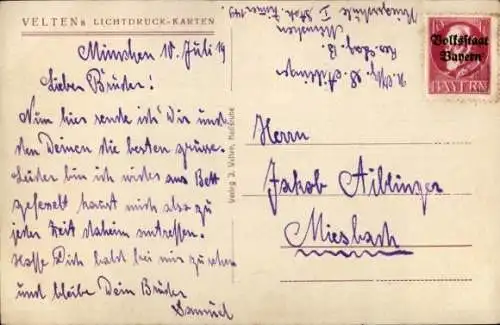 VELTENs LICHTDRUCK-KARTEN
München 10. Juli 19
Lieber Bruder!
Nun hier sende ich Dir und
den Deinen die besten Grüsse.
Leider bin ich wieder ans Bett
gefesselt kannst mich also zu
jeder Zeit daheim antreffen.
Hoffe Dich bald bei mir zu sehen
und bleibe Dein Bruder
Samuel
Verlag J. Velten, Karlsruhe
Aiblinger
München
I Stck. Zimmer
15 15
Volksstaat
Bayern
BAYERN
Herrn
Jakob Aiblinger
Miesbach